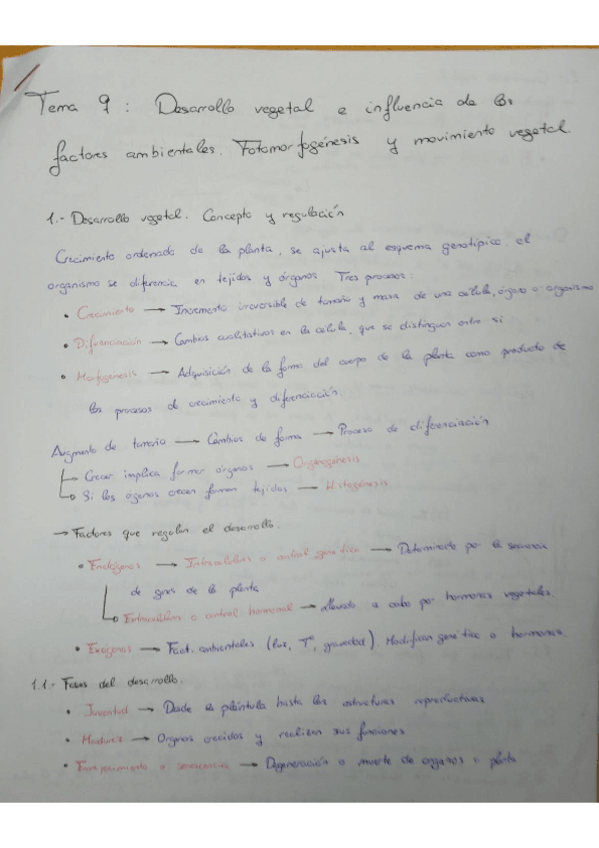 Tema 9: Desarrollo vegetal e influencia de los
factores ambientales. Fotomorfogénesis y movimiento vegetal.
1.- Desarrollo vegetal. Concepto y regulación
Crecimiento ordenado de la planta, se ajusta al esquema genotípico, el
organismo se diferencia en tejidos y órganos. Tres procesos:
• Crecimiento → Incremento irreversible de tamaño y masa de una célula, órgano o organismo
• Diferenciación → Cambios cualitativos en la célula, que se distinguen entre sí
• Morfogénesis → Adquisición de la forma del cuerpo de la planta como producto de
los procesos de crecimiento y diferenciación.
Augmento de tamaño → Cambios de forma → Proceso de diferenciación
→ Crecer implica formar órganos → Organogénesis
→ Si los órganos crecen forman tejidos → Histogénesis
→ Factores que regulan el desarrollo.
• Endógenos → Intracelulares o control genético → Determinado por la secuencia
de genes de la planta
→ Extracelulares o control hormonal → llevado a cabo por hormonas vegetales.
• Exógenos → Fact. ambientales (luz, Tª, gravedad). Modifican genética o hormonas.
1.1.- Fases del desarrollo.
• Juventud → Desde la plántula hasta las estructuras reproductoras
• Madurez → Organos crecidos y realizan sus funciones
• Envejecimiento o senescencia → Degeneración o muerte de organos o planta